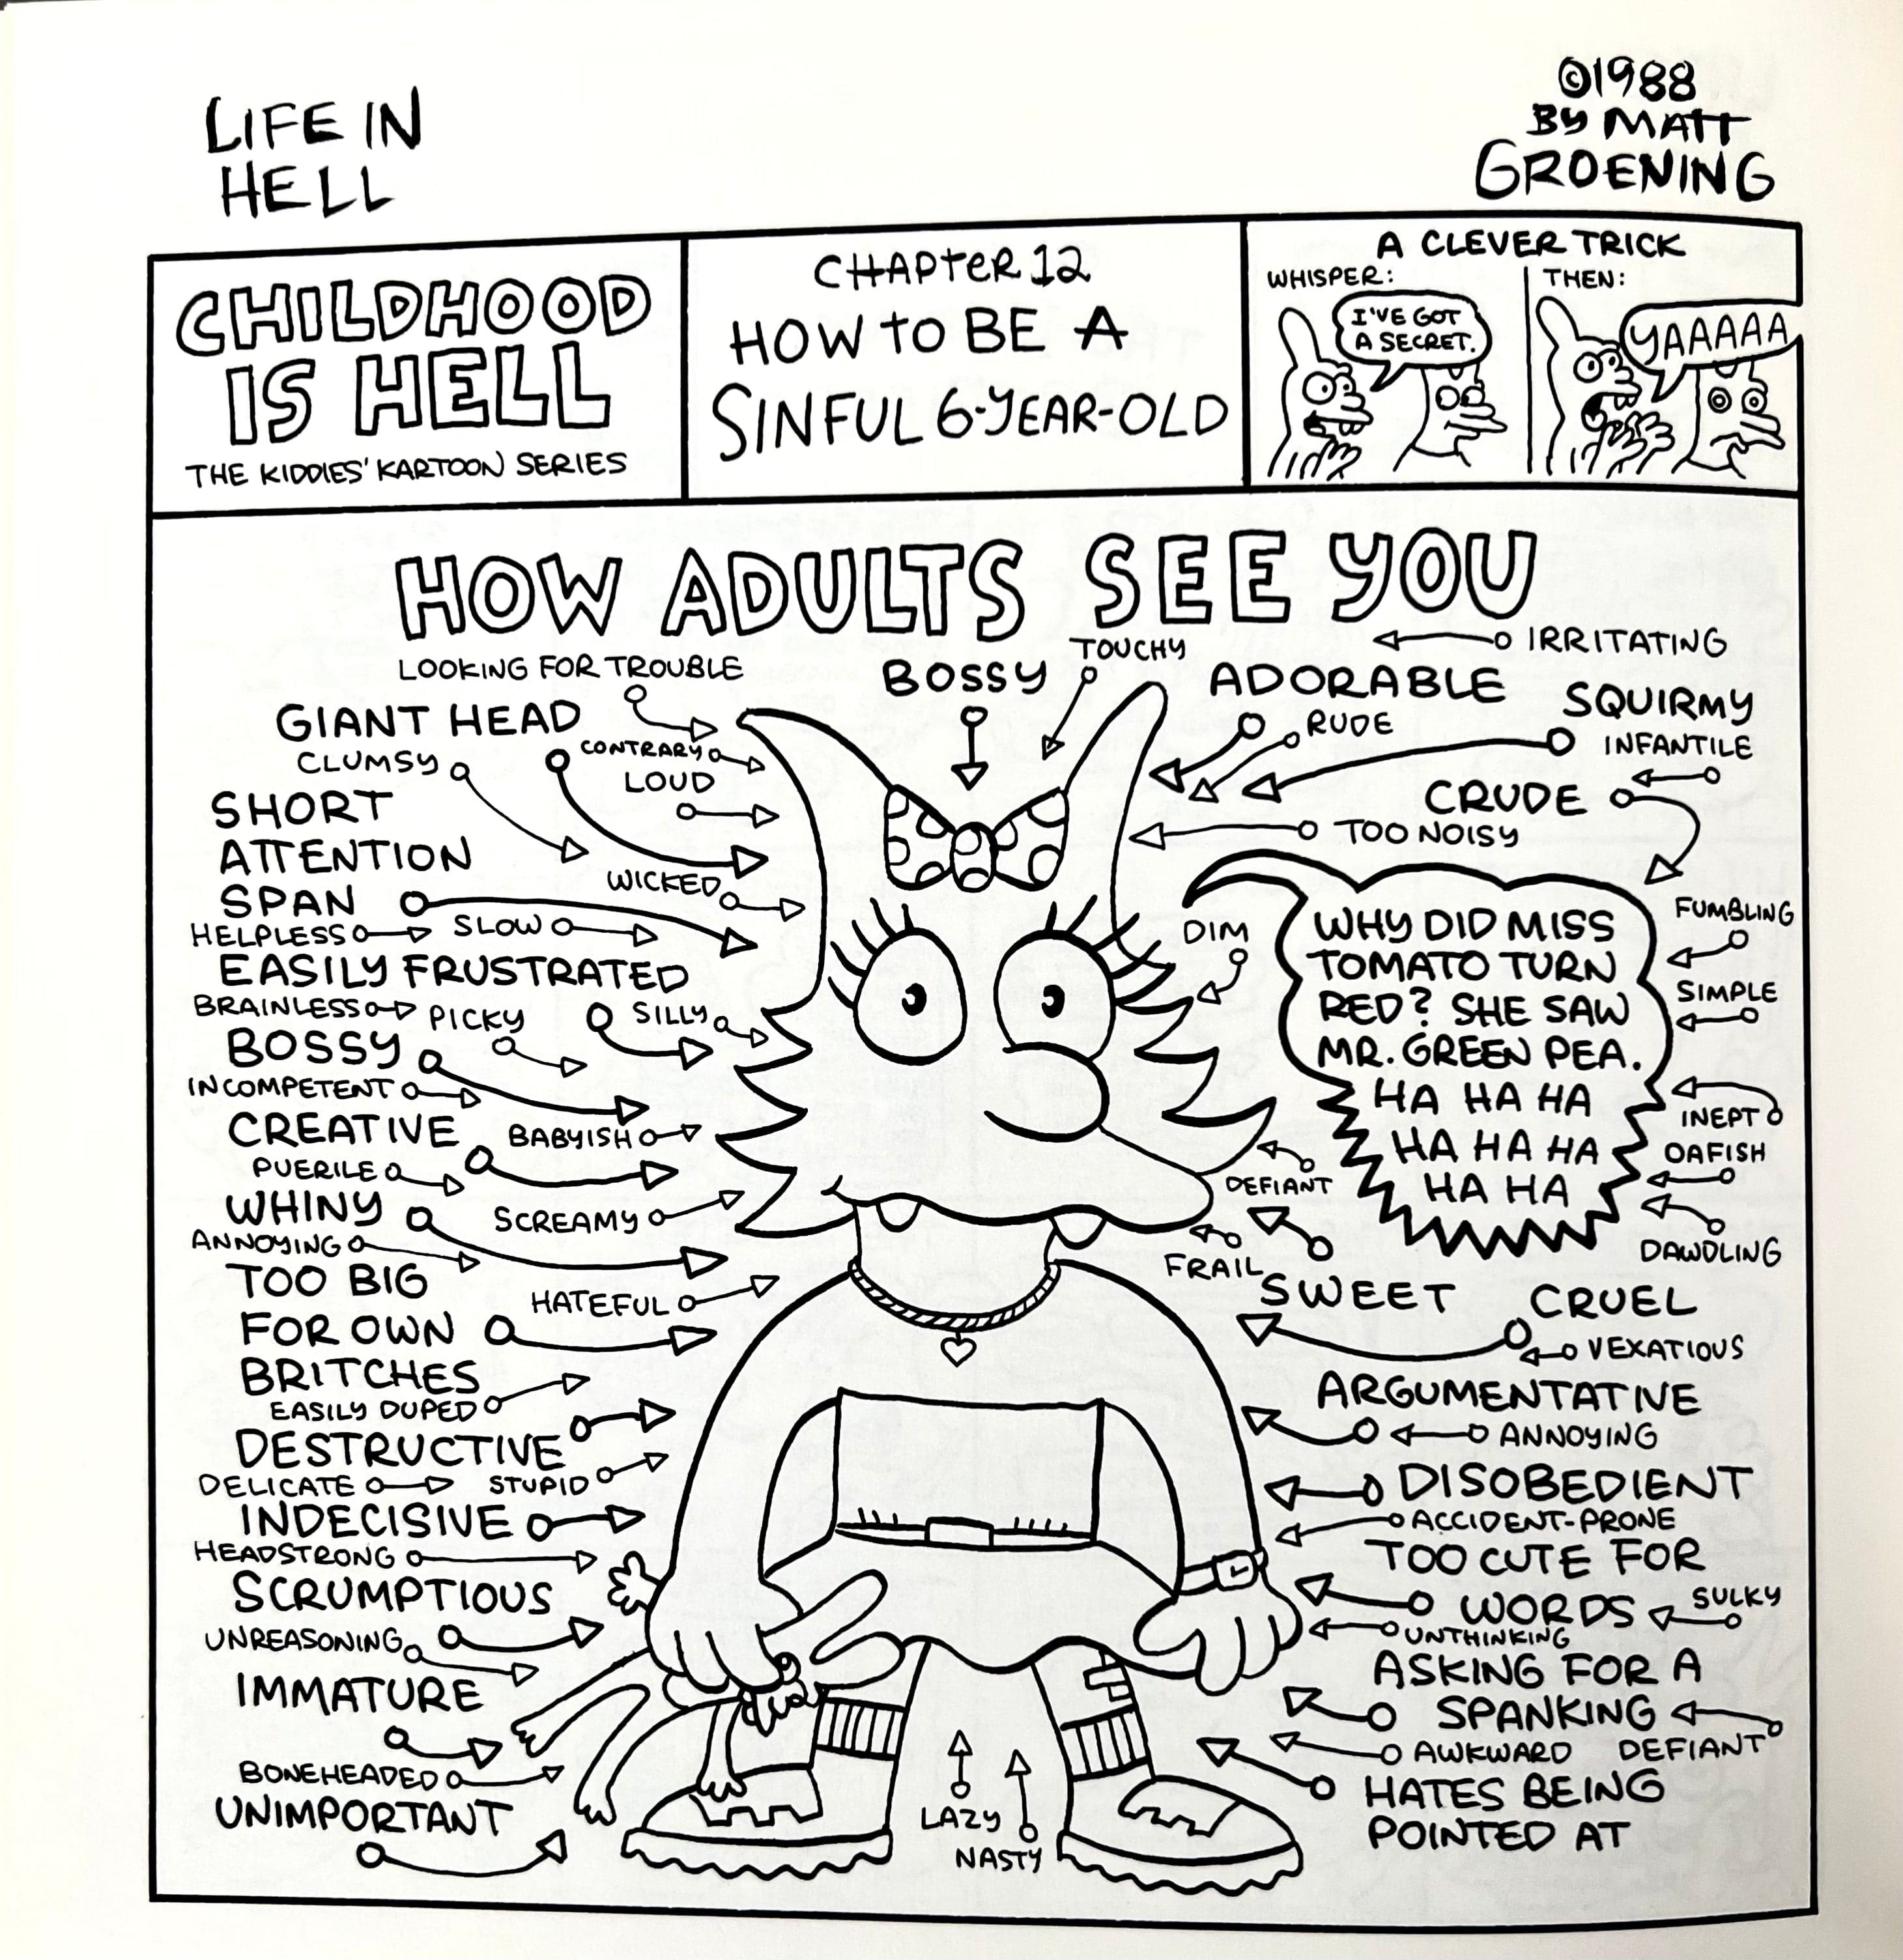 LIFE IN
HELL
©1988
BY MATT
GROENING
CHILDHOOD
IS HELL
THE KIDDIES' KARTOON SERIES
CHAPTER 12
HOW TO BE A
SINFUL 6-YEAR-OLD
A CLEVER TRICK
WHISPER:
I'VE GOT
A SECRET.
THEN:
YAAAAA
HOW ADULTS SEE YOU
LOOKING FOR TROUBLE
GIANT HEAD
CONTRARY
CLUMSY
LOUD
SHORT
ATTENTION
SPAN
WICKED
HELPLESS
SLOW
EASILY FRUSTRATED
BRAINLESS
PICKY
SILLY
BOSSY
INCOMPETENT
CREATIVE
BABYISH
PUERILE
WHINY
SCREAMY
ANNOYING
TOO BIG
FOR OWN
BRITCHES
HATEFUL
EASILY DUPED
DESTRUCTIVE
DELICATE
STUPID
INDECISIVE
HEADSTRONG
SCRUMPTIOUS
UNREASONING
IMMATURE
BONEHEADED
UNIMPORTANT
BOSSY
TOUCHY
IRRITATING
ADORABLE
RUDE
SQUIRMY
INFANTILE
CRUDE
TOO NOISY
FUMBLING
DIM
WHY DID MISS
TOMATO TURN
RED? SHE SAW
MR. GREEN PEA.
HA HA HA
HA HA HA
HA HA
SIMPLE
INEPT
OAFISH
DEFIANT
DAWDLING
FRAIL
SWEET
CRUEL
VEXATIOUS
ARGUMENTATIVE
ANNOYING
DISOBEDIENT
ACCIDENT-PRONE
TOO CUTE FOR
WORDS
SULKY
UNTHINKING
ASKING FOR A
SPANKING
AWKWARD
DEFIANT
HATES BEING
POINTED AT
LAZY
NASTY